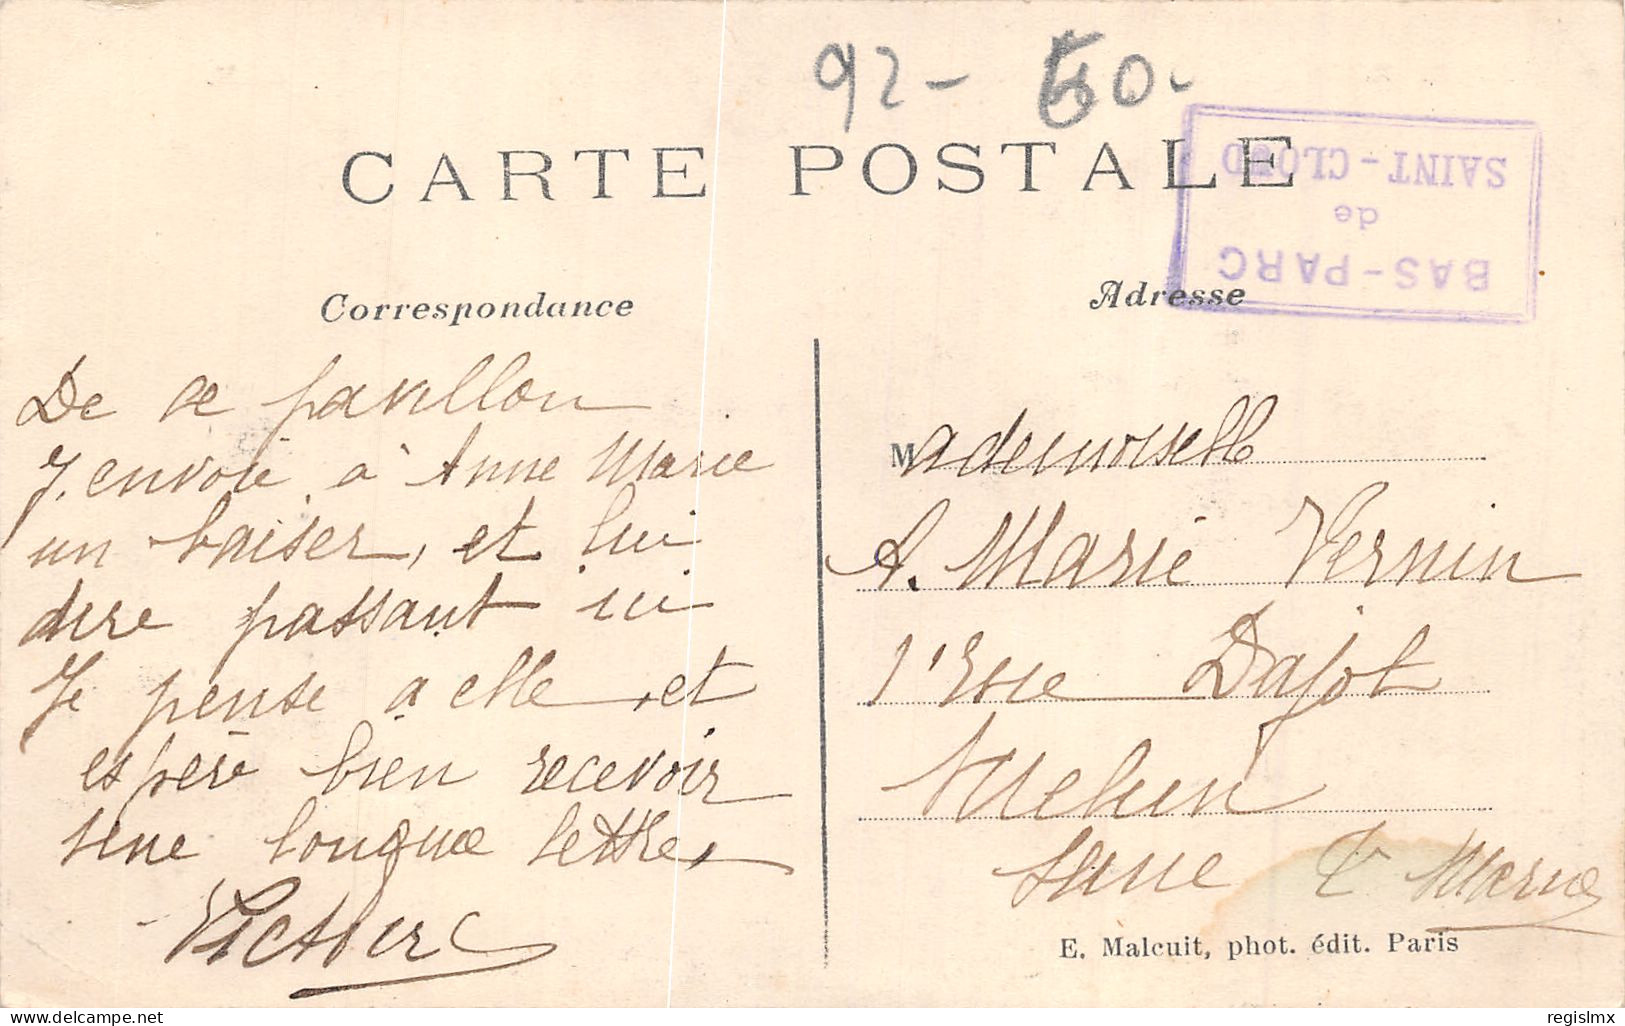 92- 60-
CARTE POSTALE
BAS-PARC
de
SAINT-CLOUD
Correspondance
De ce pavillon
J. envoie à Anne Marie
un baiser, et lui
dire passant ici
Je pense a elle, et
espère bien recevoir
une longue lettre,
Adresse
Mademoiselle
A. Marie Vernin
Dajot
Melun
Seine & Marne
E. Malcuit, phot. édit. Paris
delcampe.net
regislmx